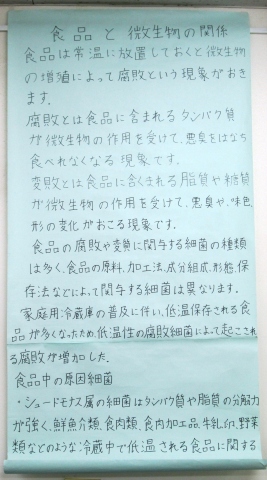 食品と微生物の関係
食品は常温に放置しておくと微生物
の増殖によって腐敗という現象がおき
ます。
腐敗とは食品に含まれるタンパク質
が微生物の作用を受けて、悪臭をはなち
食べれなくなる現象です。
変敗とは食品に含くまれる脂質や糖質
が微生物の作用を受けて、悪臭や、味、色、
形の変化がおこる現象です。
食品の腐敗や変質に関与する細菌の種類
は多く、食品の原料、加工法、成分組成、形態、保
存法などによって関与する細菌は異なります。
家庭用冷蔵庫の普及に伴い、低温保存される食
品が多くなったため、低温性の腐敗細菌によって起こされ
る腐敗が増加した。
食品中の原因細菌
・シュードモナス属の細菌はタンパク質や脂質の分解力
が強く、鮮魚介類、食肉類、食肉加工品、牛乳、卵、野菜
類などのような冷蔵中で低温される食品に関する